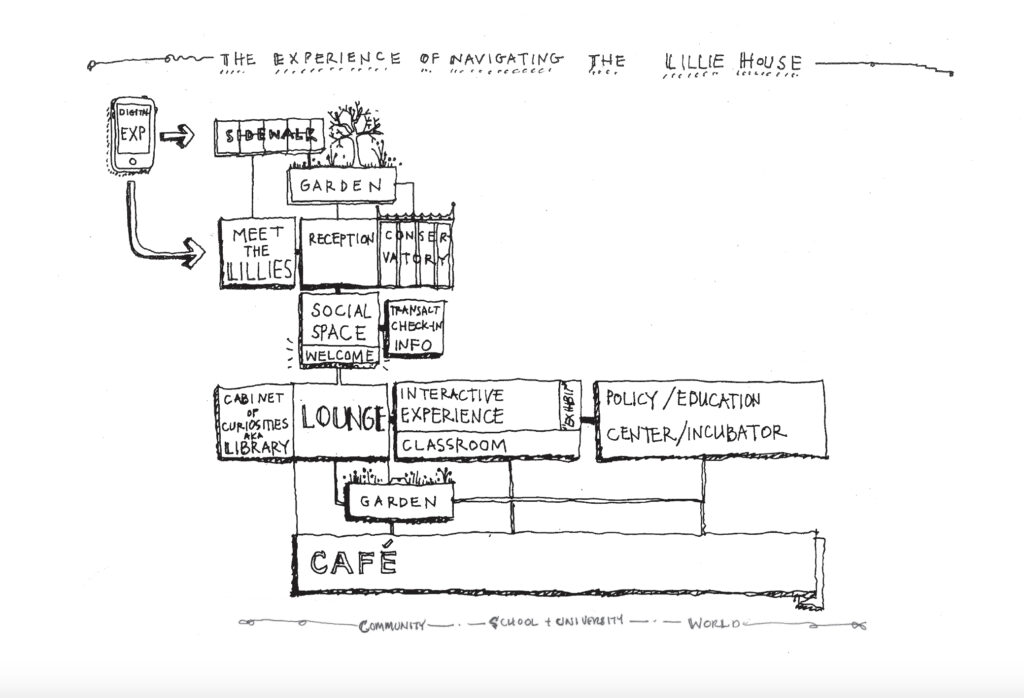 THE EXPERIENCE OF NAVIGATING THE LILLIE HOUSE
DIGITAL
EXP
SIDEWALK
GARDEN
MEET
THE
LILLIES
RECEPTION
CONSER-
VATORY
SOCIAL
SPACE
WELCOME
TRANSACT
CHECK-IN
INFO
CABINET
OF
CURIOSITIES
AKA
LIBRARY
LOUNGE
INTERACTIVE
EXPERIENCE
EXHIBIT
CLASSROOM
POLICY/EDUCATION
CENTER/INCUBATOR
GARDEN
CAFÉ
COMMUNITY — SCHOOL + UNIVERSITY — WORLD